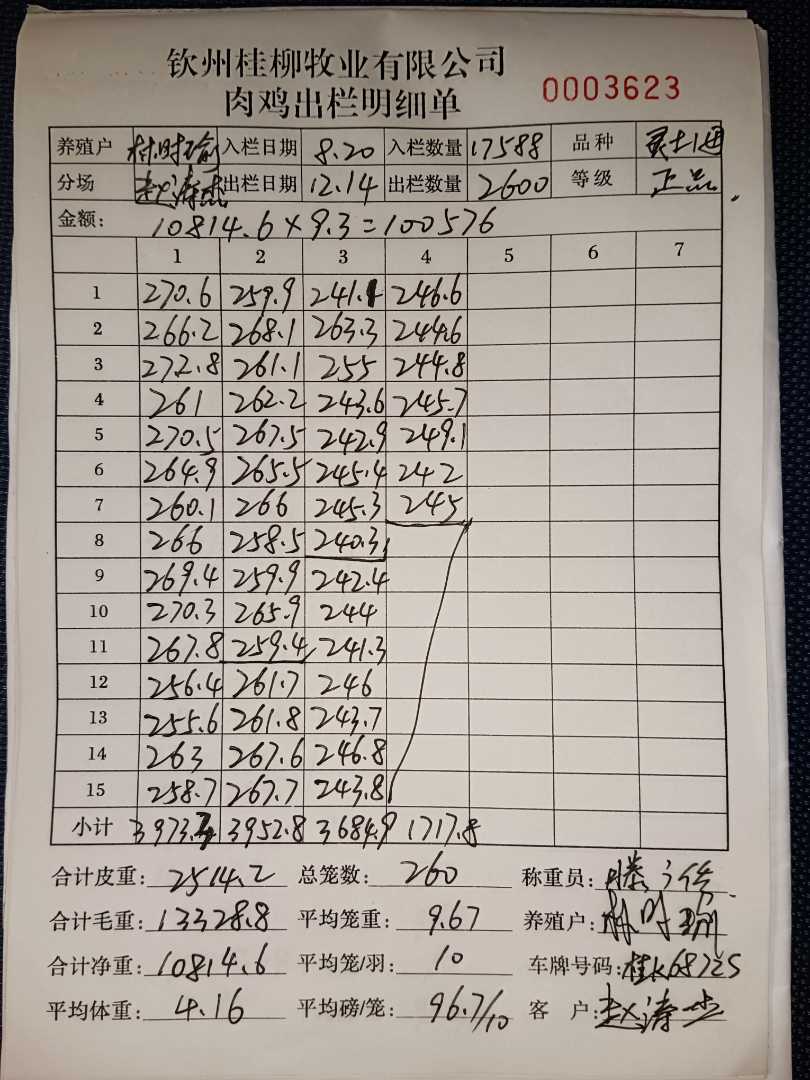 钦州桂柳牧业有限公司
肉鸡出栏明细单 0003623
养殖户 林时瑜 入栏日期 8.20 入栏数量 17588 品种
分场 赵涛杰 出栏日期 12.14 出栏数量 2600 等级 正品
金额: 10814.6×9.3=100576
1 2 3 4 5 6 7
1 270.6 259.9 241.1 246.6
2 266.2 268.1 263.3 244.6
3 272.8 261.1 255 244.8
4 261 262.2 243.6 245.7
5 270.5 267.5 242.9 249.1
6 264.9 265.5 245.4 242
7 260.1 266 245.3 245
8 266 258.5 240.3
9 269.4 259.9 242.4
10 270.3 265.9 244
11 267.8 259.4 241.3
12 256.4 261.7 246
13 255.6 261.8 243.7
14 263 267.6 246.8
15 258.7 267.7 243.8
小计 3973.3 3952.8 3684.9 1717.8
合计皮重: 2514.2 总笼数: 260 称重员:
合计毛重: 13328.8 平均笼重: 9.67 养殖户: 林时瑜
合计净重: 10814.6 平均笼/羽: 10 车牌号码: 桂K68725
平均体重: 4.16 平均磅/笼: 96.7/10 客户: 赵涛杰